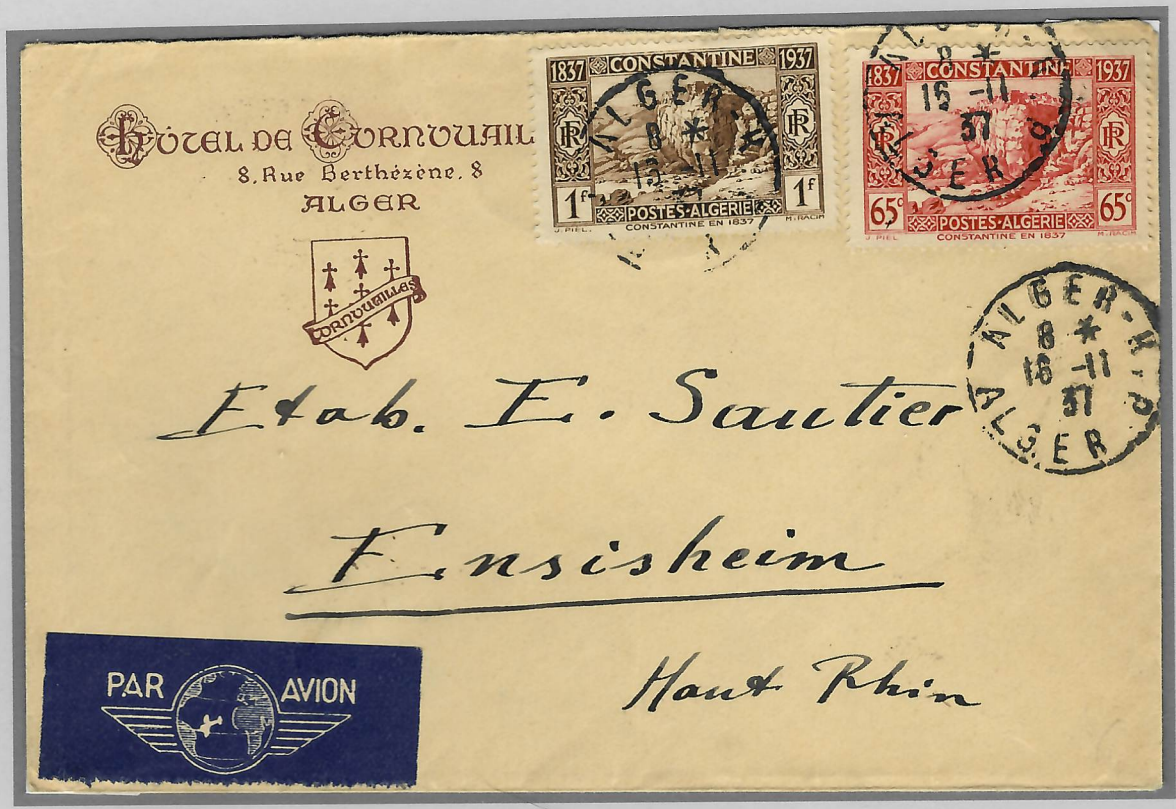 HÔTEL DE CORNOUAIL
8, Rue Berthézène, 8
ALGER
CORNOUAILLES
1837 CONSTANTINE 1937
RF RF
1F 1F
POSTES-ALGÉRIE
J. PIEL CONSTANTINE EN 1837 M. RACIM
ALGER-R.P
8 *
ALGER
1837 CONSTANTINE 1937
RF RF
65c 65c
POSTES-ALGÉRIE
J. PIEL CONSTANTINE EN 1837 M. RACIM
8 *
16-11
37
ALGER
ALGER-R.P
8 *
16-11
37
ALGER
Etab. E. Sautier
Ensisheim
Haut Rhin
PAR AVION